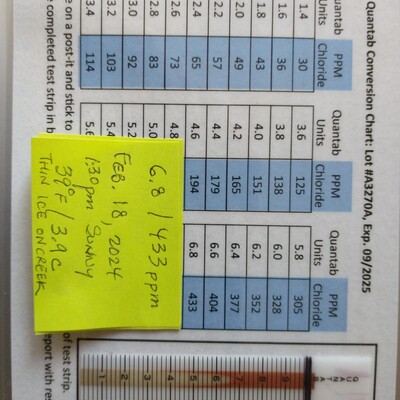 Quantab Conversion Chart: Lot #A3270A, Exp. 09/2025
Quantab Units PPM Chloride Quantab Units PPM Chloride Quantab Units PPM Chloride
1.4 30 3.6 125 5.8 305
1.6 36 3.8 138 6.0 328
1.8 43 4.0 151 6.2 352
2.0 49 4.2 165 6.4 377
2.2 57 4.4 179 6.6 404
2.4 65 4.6 194 6.8 433
2.6 73 4.8
2.8 83 5.0
3.0 92 5.2
3.2 103 5.4
3.4 114 5.6
6.8 / 433 ppm
FEB. 18, 2024
1:30pm Sunny
39°F / 3.9 C
THIN ICE ON CREEK
e on a post-it and stick to of test strip.
completed test strip in eport with
QUANTAB
9 8 7 6 5 4 3 2 1